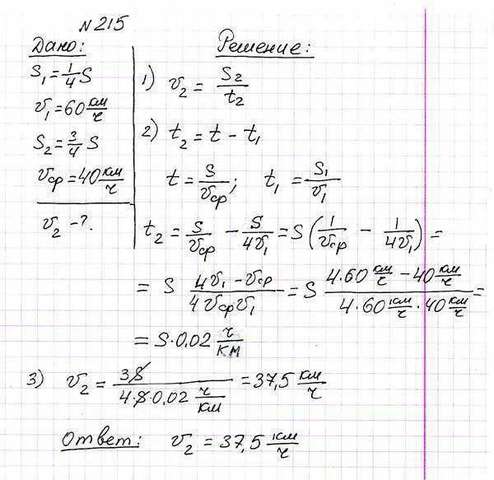 № 215
Дано:
S₁ = 1/4 S
v₁ = 60 км/ч
S₂ = 3/4 S
vср = 40 км/ч
v₂ - ?.
Решение:
1) v₂ = S₂/t₂
2) t₂ = t - t₁
t = S/vср ; t₁ = S₁/v₁
t₂ = S/vср - S/4v₁ = S (1/vср - 1/4v₁) =
= S (4v₁ - vср)/(4vср v₁) = S (4·60 км/ч - 40 км/ч)/(4·60 км/ч · 40 км/ч) =
= S·0,02 ч/км
3) v₂ = 3S/(4·S·0,02 ч/км) = 37,5 км/ч
Ответ: v₂ = 37,5 км/ч